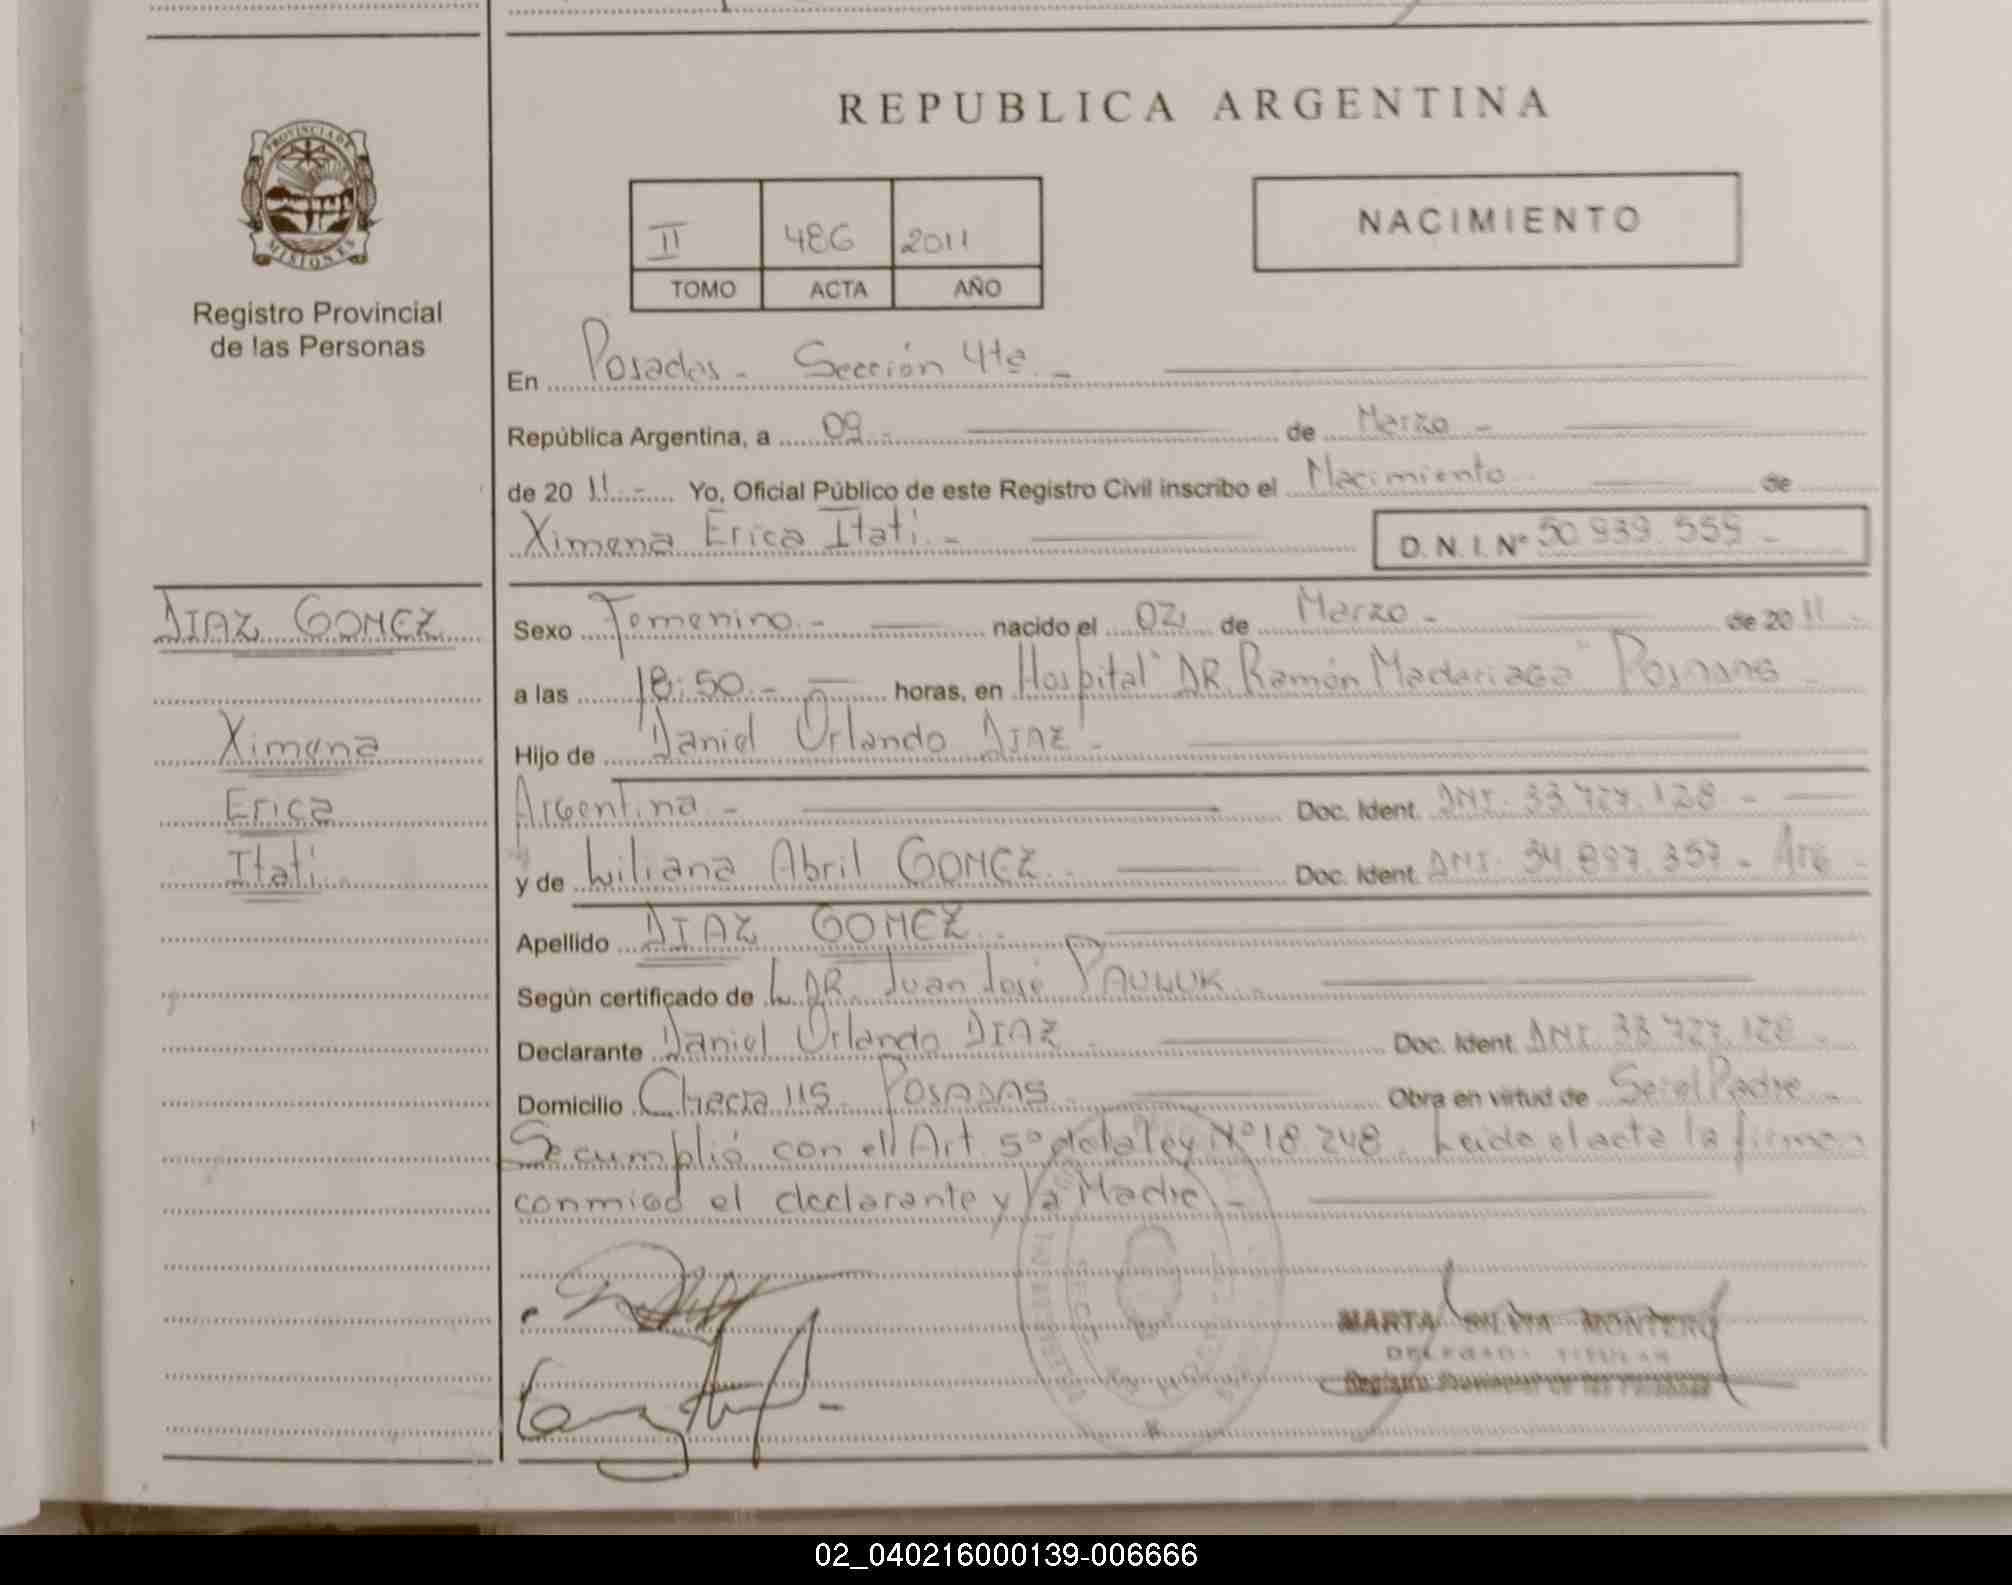 REPUBLICA ARGENTINA
PROVINCIA DE
MISIONES
Registro Provincial
de las Personas
II 486 2011
TOMO ACTA AÑO
NACIMIENTO
En Posadas - Sección 4ta. -
República Argentina, a 09 - de Marzo -
de 20 11 - Yo, Oficial Público de este Registro Civil inscribo el Nacimiento de
Ximena Erica Itati - D. N. I. Nº 50 939 559 -
DIAZ GOMEZ
Ximena
Erica
Itati
Sexo Femenino - nacido el 02 de Marzo - de 20 11 -
a las 18:50 - horas, en Hospital "DR. Ramón Madariaga" POSADAS -
Hijo de Daniel Orlando DIAZ -
Argentina - Doc. Ident. DNI. 33.727.128 -
y de Liliana Abril GOMEZ - Doc. Ident. DNI. 34.897.357 - Arg -
Apellido DIAZ GOMEZ
Según certificado de L DR. Juan José PAULUK
Declarante Daniel Orlando DIAZ - Doc. Ident. DNI. 33.727.128 -
Domicilio Chacra 115 - POSADAS - Obra en virtud de Ser el Padre -
Se cumplió con el Art 5º de la ley Nº 18.248. Leida el acta la firman
conmigo el declarante y la Madre -
MARTA SILVIA MONTERO
DELEGADA TITULAR
de las Personas
02_040216000139-006666